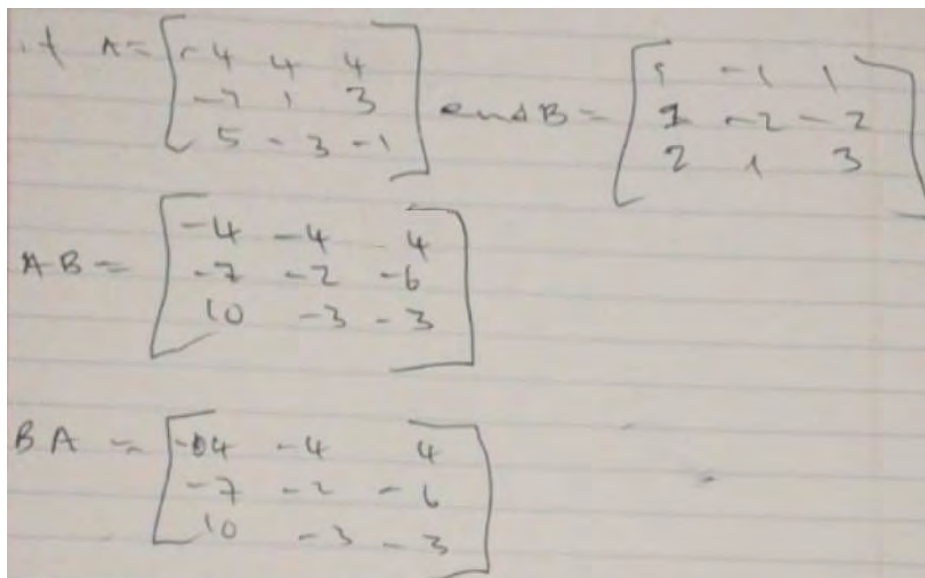 if A = [-4 4 4
-7 1 3 and B = [1 -1 1
5 -3 -1] 1 -2 -2
2 1 3]
AB = [-4 -4 4
-7 -2 -6
10 -3 -3]
BA = [-04 -4 4
-7 -2 -6
10 -3 -3]